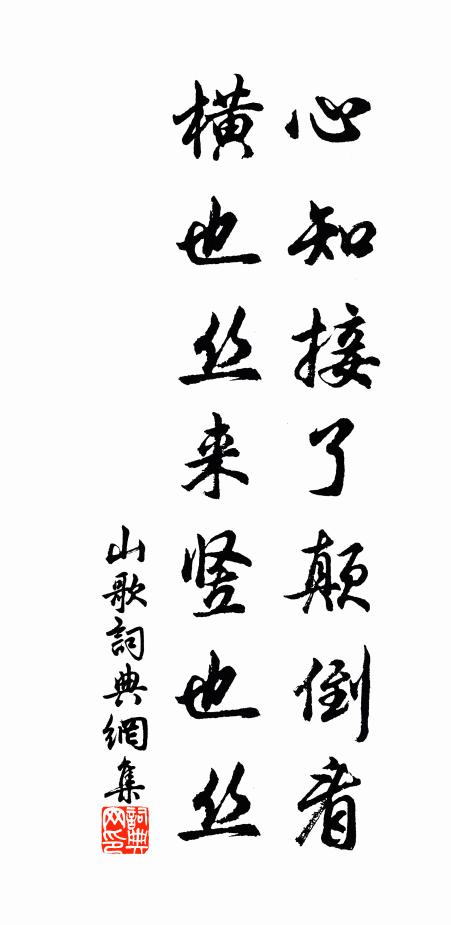 心知接了颠倒看
横也丝来竖也丝
山歌詞典網集
詞典网印